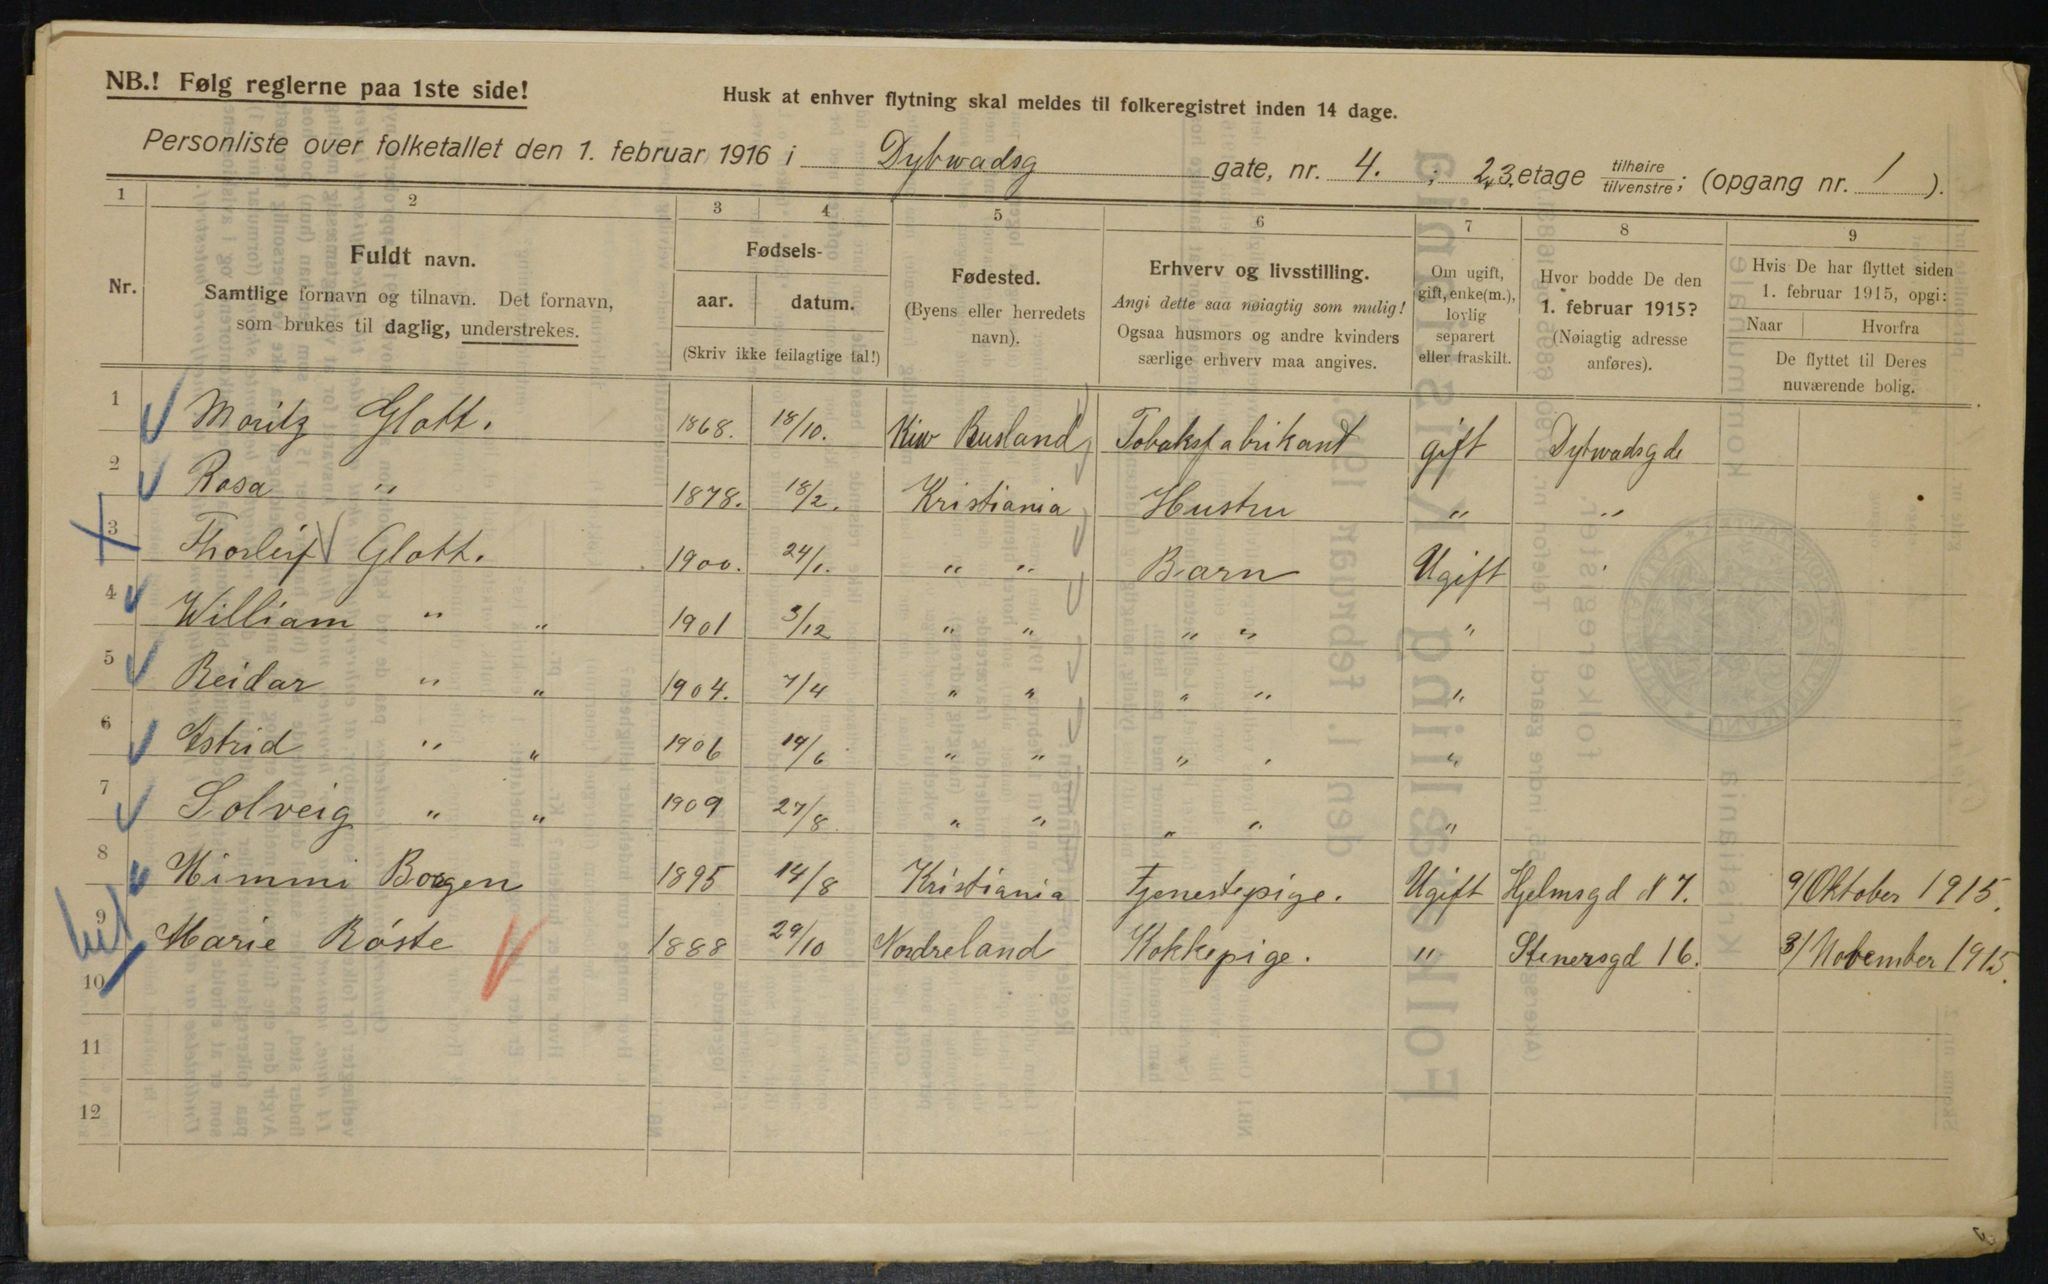 NB.! Følg reglerne paa 1ste side!
Husk at enhver flytning skal meldes til folkeregistret inden 14 dage.
Personliste over folketallet den 1. februar 1916 i Dybwadsg gate, nr. 4. ; 2, 3. etage tilhøire tilvenstre; (opgang nr. 1 ).
1 2 3 4 5 6 7 8 9
Nr.
Fuldt navn.
Samtlige fornavn og tilnavn. Det fornavn,
som brukes til daglig, understrekes.
Fødsels-
aar. datum.
(Skriv ikke feilagtige tal!)
Fødested.
(Byens eller herredets
navn).
Erhverv og livsstilling.
Angi dette saa nøiagtig som mulig!
Ogsaa husmors og andre kvinders
særlige erhverv maa angives.
Om ugift,
gift, enke(m.),
lovlig
separert
eller fraskilt.
Hvor bodde De den
1. februar 1915?
(Nøiagtig adresse
anføres).
Hvis De har flyttet siden
1. februar 1915, opgi:
Naar Hvorfra
De flyttet til Deres
nuværende bolig.
1 Moritz Glott. 1868. 18/10. Kiw Rusland Tobaksfabrikant gift Dybwadsgde
2 Rosa " 1878. 18/2. Kristiania Hustru " "
3 Thorleif Glott. 1900. 24/1. " " Barn Ugift
4 William " " 1901 3/12 " " " " "
5 Reidar " " 1904. 7/4 " " " " "
6 Astrid " " 1906 19/6 " " " " "
7 Solveig " " 1909 27/8 " " " " "
8 Mimmi Borgen 1895 14/8 Kristiania Tjenestepige. Ugift Hjelmsgd N 7. 9/Oktober 1915.
9 Marie Röste 1888 29/10 Nordreland Kokkepige. " Stenersgd 16. 3/November 1915.
10
11
12